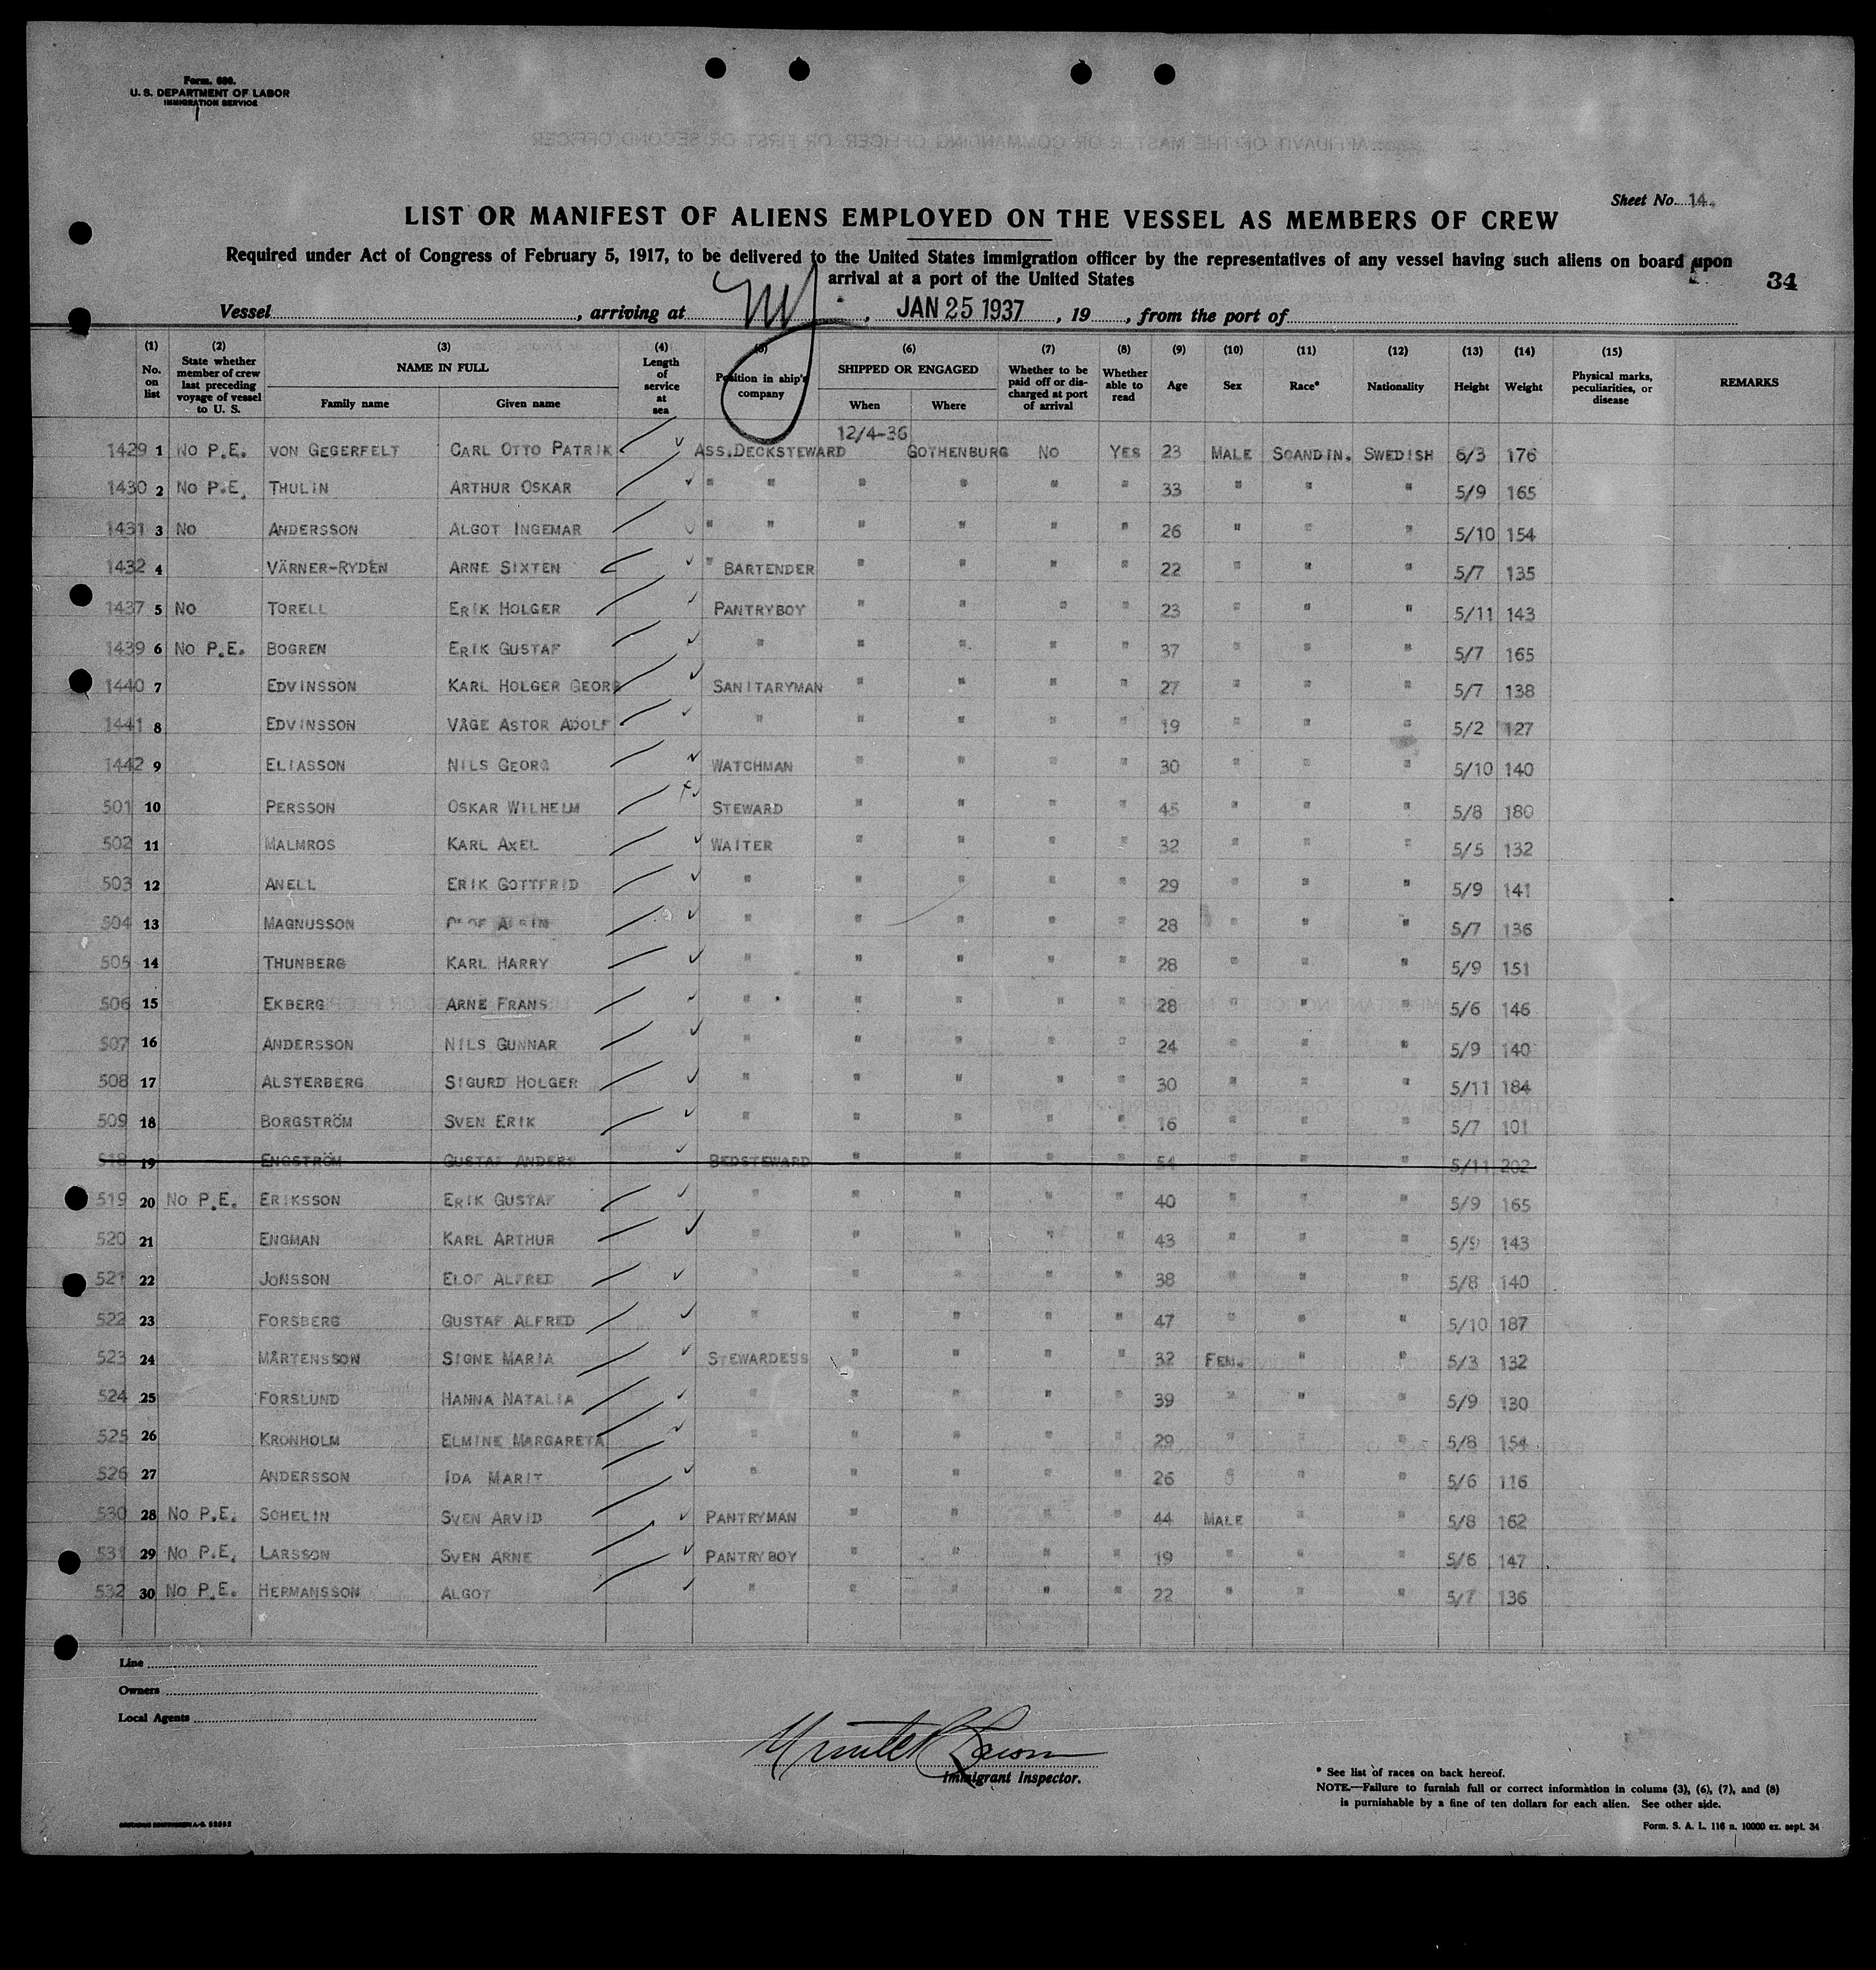 Form. 680.
U. S. DEPARTMENT OF LABOR
IMMIGRATION SERVICE
Sheet No. 14.
LIST OR MANIFEST OF ALIENS EMPLOYED ON THE VESSEL AS MEMBERS OF CREW
Required under Act of Congress of February 5, 1917, to be delivered to the United States immigration officer by the representatives of any vessel having such aliens on board upon
arrival at a port of the United States
34
Vessel , arriving at NY , JAN 25 1937 , 19 , from the port of
(1) No. on list (2) State whether member of crew last preceding voyage of vessel to U. S. (3) NAME IN FULL Family name Given name (4) Length of service at sea (5) Position in ship's company (6) SHIPPED OR ENGAGED When Where (7) Whether to be paid off or discharged at port of arrival (8) Whether able to read (9) Age (10) Sex (11) Race* (12) Nationality (13) Height (14) Weight (15) Physical marks, peculiarities, or disease REMARKS
12/4-36
1429 1 NO P.E. VON GEGERFELT CARL OTTO PATRIK ASS.DECKSTEWARD GOTHENBURG NO YES 23 MALE SCANDIN. SWEDISH 6/3 176
1430 2 NO P.E. THULIN ARTHUR OSKAR " " " " " " 33 " " " 5/9 165
1431 3 NO ANDERSSON ALGOT INGEMAR " " " " " " 26 " " " 5/10 154
1432 4 VÄRNER-RYDÉN ARNE SIXTEN " BARTENDER " " " " 22 " " " 5/7 135
1437 5 NO TORELL ERIK HOLGER PANTRYBOY " " " " 23 " " " 5/11 143
1439 6 NO P.E. BOGREN ERIK GUSTAF " " " " " 37 " " " 5/7 165
1440 7 EDVINSSON KARL HOLGER GEORG SANITARYMAN " " " " 27 " " " 5/7 138
1441 8 EDVINSSON VÅGE ASTOR ADOLF " " " " " 19 " " " 5/2 127
1442 9 ELIASSON NILS GEORG WATCHMAN " " " " 30 " " " 5/10 140
501 10 PERSSON OSKAR WILHELM STEWARD " " " " 45 " " " 5/8 180
502 11 MALMROS KARL AXEL WAITER " " " " 32 " " " 5/5 132
503 12 ANELL ERIK GOTTFRID " " " " " 29 " " " 5/9 141
504 13 MAGNUSSON OLOF ALBIN " " " " " 28 " " " 5/7 136
505 14 THUNBERG KARL HARRY " " " " " 28 " " " 5/9 151
506 15 EKBERG ARNE FRANS " " " " " 28 " " " 5/6 146
507 16 ANDERSSON NILS GUNNAR " " " " " 24 " " " 5/9 140
508 17 ALSTERBERG SIGURD HOLGER " " " " " 30 " " " 5/11 184
509 18 BORGSTRÖM SVEN ERIK " " " " " 16 " " " 5/7 101
518 19 ENGSTRÖM GUSTAF ANDERS BEDSTEWARD " " " " 54 " " " 5/11 202
519 20 NO P.E. ERIKSSON ERIK GUSTAF " " " " " 40 " " " 5/9 165
520 21 ENGMAN KARL ARTHUR " " " " " 43 " " " 5/9 143
521 22 JONSSON ELOF ALFRED " " " " " 38 " " " 5/8 140
522 23 FORSBERG GUSTAF ALFRED " " " " " 47 " " " 5/10 187
523 24 MÅRTENSSON SIGNE MARIA STEWARDESS " " " " 32 FEM. " " 5/3 132
524 25 FORSLUND HANNA NATALIA " " " " " 39 " " " 5/9 130
525 26 KRONHOLM ELMINE MARGARETA " " " " " 29 " " " 5/8 154
526 27 ANDERSSON IDA MARIT " " " " " 26 " " " 5/6 116
530 28 NO P.E. SOHELIN SVEN ARVID PANTRYMAN " " " " 44 MALE " " 5/8 162
531 29 NO P.E. LARSSON SVEN ARNE PANTRYBOY " " " " 19 " " " 5/6 147
532 30 NO P.E. HERMANSSON ALGOT " " " " " 22 " " " 5/7 136
Line
Owners
Local Agents
Immigrant Inspector.
* See list of races on back hereof.
NOTE.—Failure to furnish full or correct information in colums (3), (6), (7), and (8)
is punishable by a fine of ten dollars for each alien. See other side.
Form. S. A. L. 116 n. 10000 ex. sept. 34